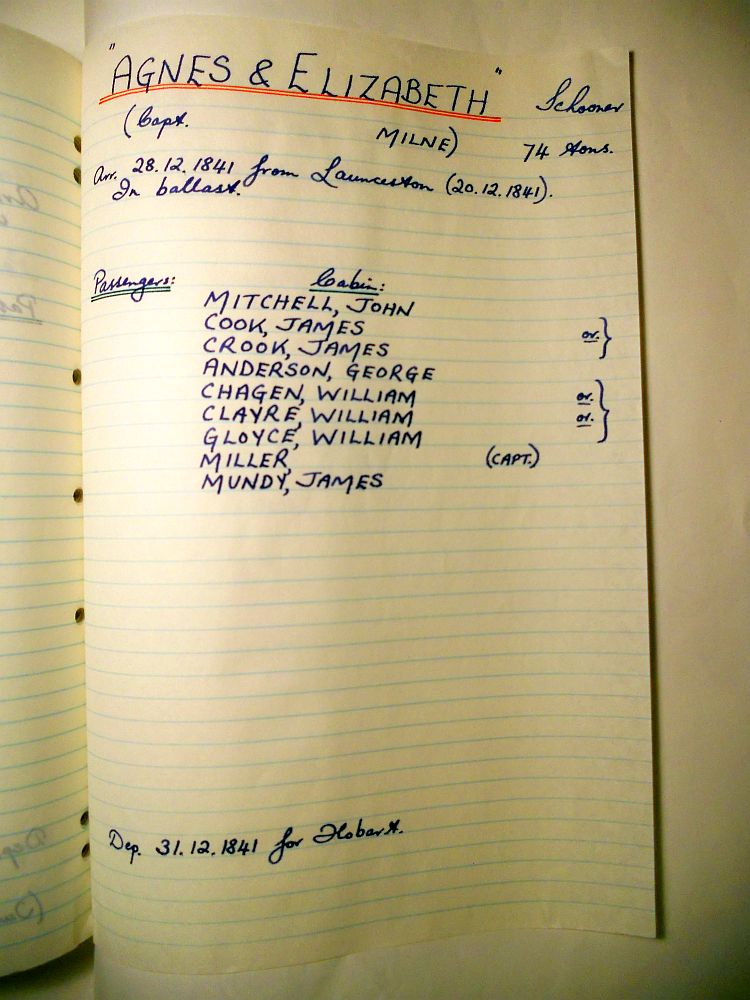 "AGNES & ELIZABETH" Schooner
(Capt. MILNE) 74 tons.
Arr. 28.12.1841 from Launceston (20.12.1841).
In ballast.
Passengers: Cabin:
MITCHELL, JOHN
COOK, JAMES or. }
CROOK, JAMES
ANDERSON, GEORGE
CHAGEN, WILLIAM or. }
CLAYRE, WILLIAM or.
GLOYCE, WILLIAM
MILLER, (CAPT.)
MUNDY, JAMES
Dep. 31.12.1841 for Hobart.